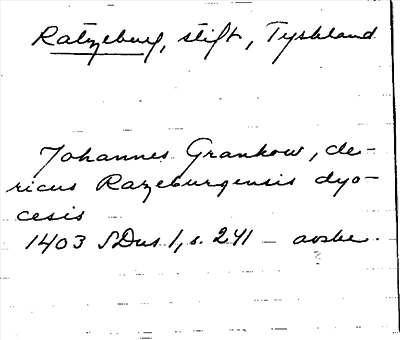 Ratzeburg, stift, Tyskland
Johannes Grankow, cle-
ricus Razeburgensis dyo-
cesis
1403 SDns 1, s. 241 – avskr.